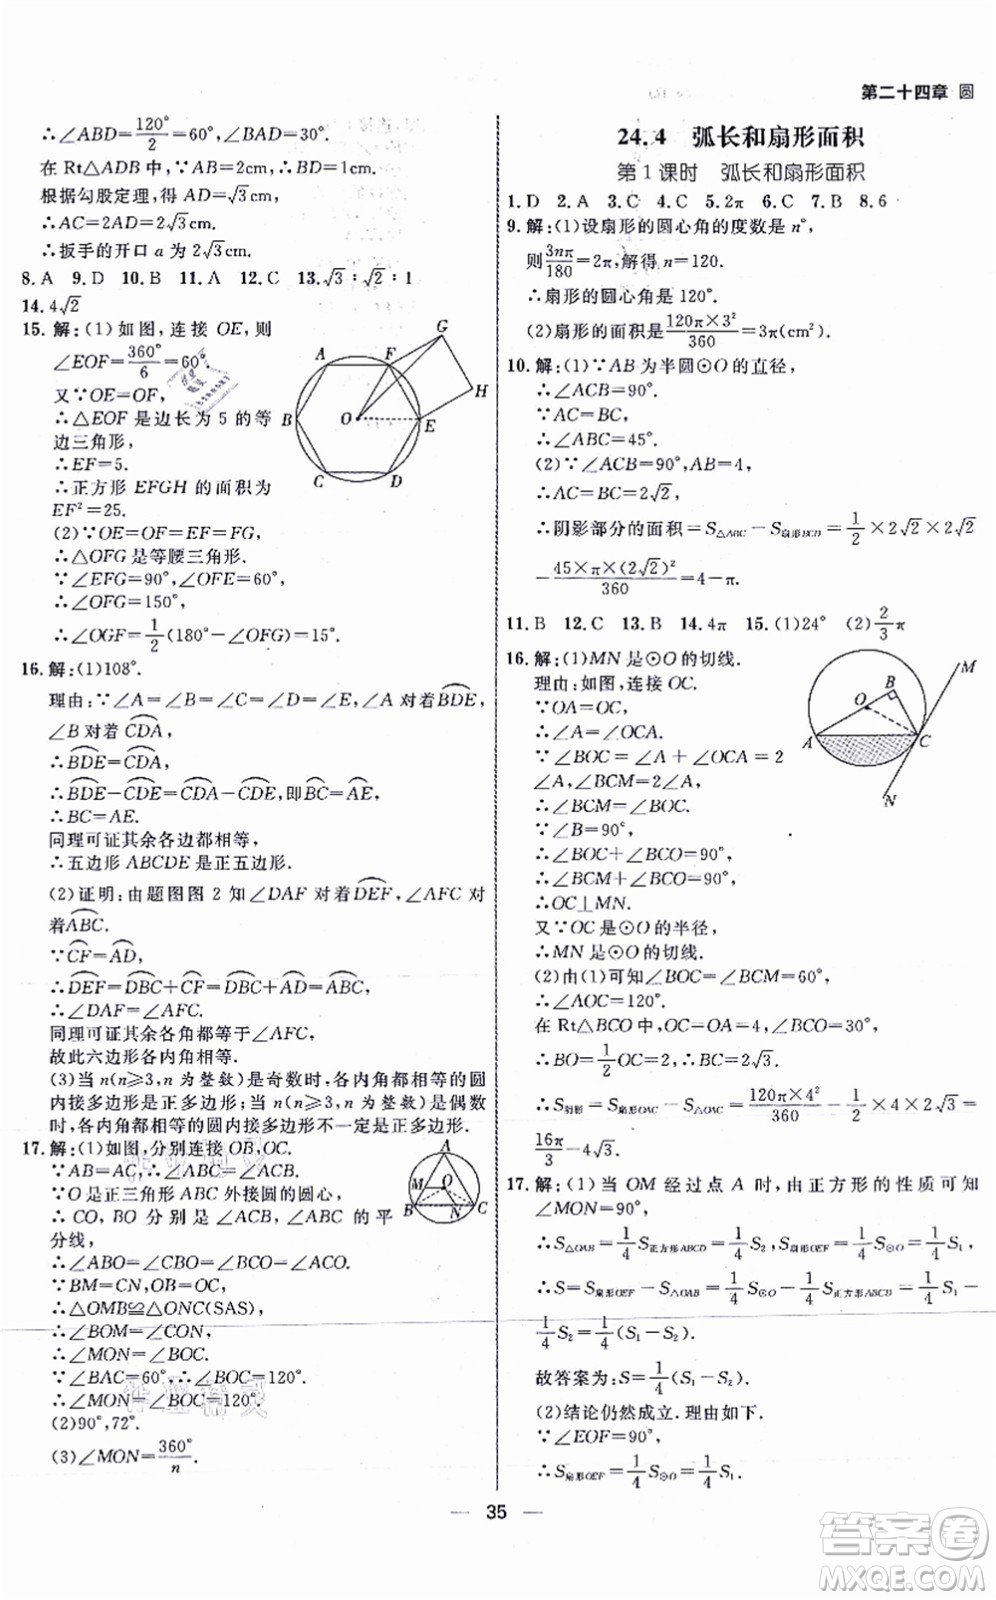 第二十四章 圆
∴∠ABD=120°/2=60°,∠BAD=30°.
在 Rt△ADB 中,AB=2cm,BD=1cm.
根据勾股定理,得 AD=√3 cm,
∴AC=2AD=2√3 cm,
∴扳手的开口 a 为 2√3 cm.
8. A 9. D 10. B 11. A 12. C 13. √3 : √2 : 1
14. 4√2
15. 解:(1)如图,连接 OE,则
∠EOF=360°/6=60°.
又∵OE=OF,
∴△EOF 是边长为 5 的等
边三角形,
∴EF=5.
∴正方形 EFGH 的面积为
EF²=25.
(2)∵OE=OF=EF=FG,
∴△OFG 是等腰三角形.
∵∠EFG=90°,∠OFE=60°,
∴∠OFG=150°,
∴∠OGF=1/2(180°-∠OFG)=15°.
A F G H B O E C D
16. 解:(1)108°.
理由:∵∠A=∠B=∠C=∠D=∠E,∠A 对着BDE,
∠B 对着CDA,
∴BDE=CDA.
∴BDE-CDE=CDA-CDE,即BC=AE,
∴BC=AE.
同理可证其余各边都相等,
∴五边形 ABCDE 是正五边形.
(2)证明:由题图图 2 知∠DAF 对着DEF,∠AFC 对
着ABC.
∵CF=AD,
∴DEF=DBC+CF=DBC+AD=ABC,
∴∠DAF=∠AFC.
同理可证其余各角都等于∠AFC,
故此六边形各内角相等.
(3)当 n(n≥3,n 为整数)是奇数时,各内角都相等的圆
内接多边形是正多边形;当 n(n≥3,n 为整数)是偶数
时,各内角都相等的圆内接多边形不一定是正多边形.
17. 解:(1)如图,分别连接 OB,OC.
∵AB=AC,∴∠ABC=∠ACB.
∵O是正三角形 ABC 外接圆的圆心,
∴CO,BO 分别是∠ACB,∠ABC 的平
分线,
∴∠ABO=∠CBO=∠OCB.
∵BM=CN,OB=OC,
∴△OMB≌△ONC(SAS),
∴∠BOM=∠CON,
∴∠MON=∠BOC.
∵∠BAC=60°,∴∠BOC=120°,
∴∠MON=∠BOC=120°.
(2)90°,72°.
(3)∠MON=360°/n.
A M O B N C
24.4 弧长和扇形面积
第 1 课时 弧长和扇形面积
1. D 2. A 3. C 4. C 5. 2π 6. C 7. B 8. 6
9. 解:(1)设扇形的圆心角的度数是 n°,
则 3nπ/180=2π,解得 n=120.
∴扇形的圆心角是 120°.
(2)扇形的面积是120π×3²/360=3π(cm²).
10. 解:(1)∵AB 为半圆⊙O 的直径,
∴∠ACB=90°.
∵AC=BC,
∴∠ABC=45°.
(2)∵∠ACB=90°,AB=4,
∴AC=BC=2√2,
∴阴影部分的面积=S△ABC-S扇形BCD=1/2×2√2×2√2
-45×π×(2√2)²/360=4-π.
11. B 12. C 13. B 14. 4π 15. (1)24° (2)2/3π
16. 解:(1)MN 是⊙O 的切线.
理由:如图,连接 OC.
∵OA=OC,
∴∠A=∠OCA.
∵∠BOC=∠A+∠OCA=2
∠A,∠BCM=2∠A,
∴∠BCM=∠BOC.
∵∠B=90°,
∴∠BOC+∠BCO=90°,
∴∠BCM+∠BCO=90°,
∴OC⊥MN.
又∵OC是⊙O的半径,
∴MN 是⊙O 的切线.
(2)由(1)可知∠BOC=∠BCM=60°,
∴∠AOC=120°.
在 Rt△BCO 中,OC=OA=4,∠BCO=30°,
∴BO=1/2OC=2,∴BC=2√3.
∴S阴影=S扇形OAC-S△OAC=120π×4²/360-1/2×4×2√3=
16π/3-4√3.
M B O A C N
17. 解:(1)当 OM 经过点 A 时,由正方形的性质可知
∠MON=90°,
∴S△OAB=1/4S正方形ABCD=1/4S₂,S扇形OEF=1/4S⊙O=1/4S₁,
∴S=S扇形OEF-S△OAB=1/4S⊙O-1/4S正方形ABCD=1/4S₁-
1/4S₂=1/4(S₁-S₂).
故答案为:S=1/4(S₁-S₂).
(2)结论仍然成立.理由如下:
∵∠EOF=90°,
∴S扇形OEF=1/4S⊙O=1/4S₁.
— 35 —
答案卷